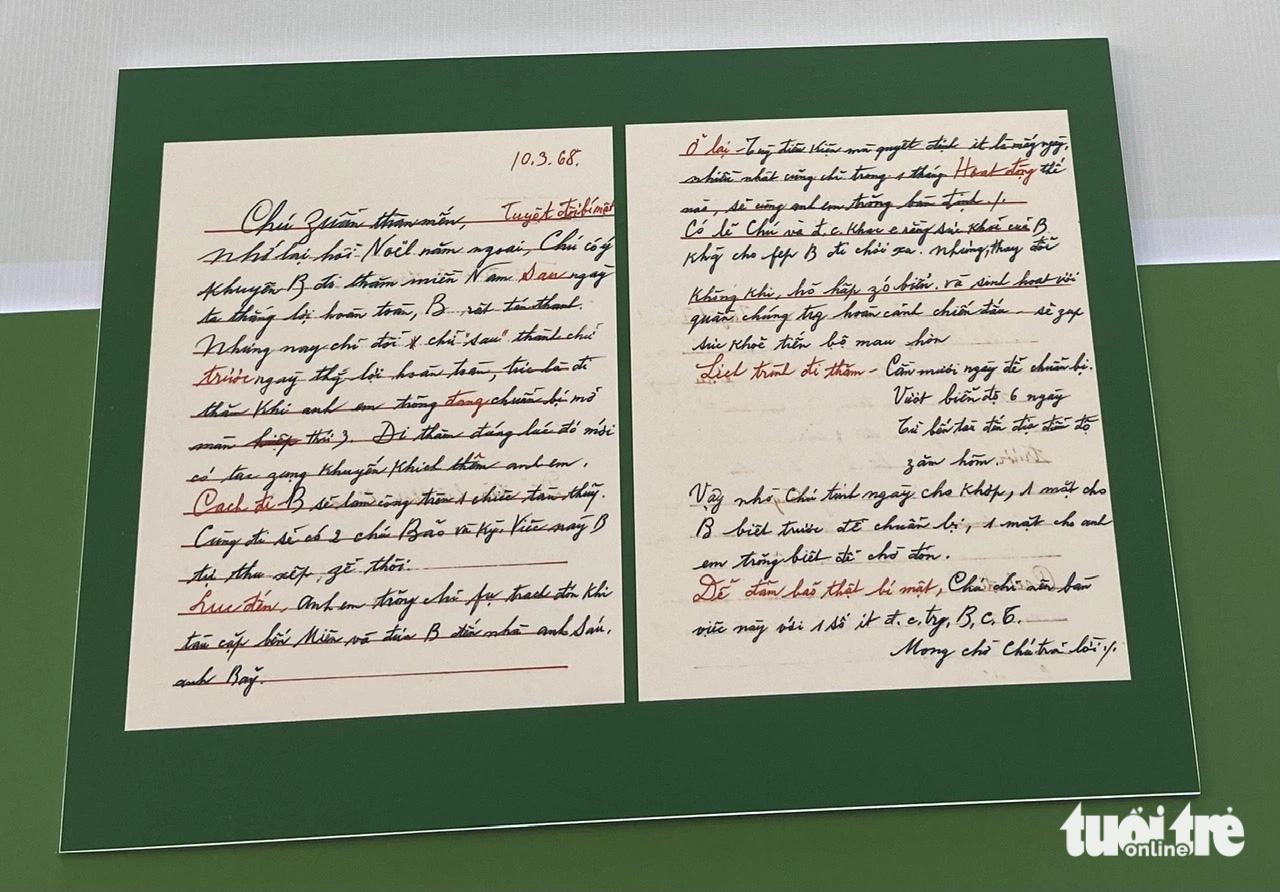 10.3.68.
Tuyệt đối bí mật
Chú Zuẩn thân mến,
Nhớ lại hồi Noël năm ngoái, Chú có ý
khuyên B đi thăm miền Nam sau ngày
ta thắng lợi hoàn toàn, B rất tán thành.
Nhưng nay chỉ đổi chữ "sau" thành chữ
trước ngày thắng lợi hoàn toàn, tức là đi
thăm khi anh em trỏng đang chuẩn bị mở
màn hiệp thứ 3. Đi thăm đúng lúc đó mới
có tác zụng khuyến khích thêm anh em.
Cách đi B sẽ làm công trên 1 chiếc tàu thủy.
Cùng đi sẽ có 2 chú Bảo và Kỳ. Việc này B
tự thu xếp, zễ thôi.
Lúc đến, Anh em trỏng chỉ fụ trách đón khi
tàu cập bến Miên và đưa B đến nhà anh Sáu,
anh Bảy.
Ở lại - Tùy điều kiện mà quyết định ít là mấy ngày,
nhiều nhất cũng chỉ trong 1 tháng Hoạt động thế
nào, sẽ cùng anh em trỏng bàn định ./.
Có lẽ Chú và đ.c. khác e rằng sức khỏe của B
khg cho fép B đi chơi xa. nhưng, thay đổi
không khí, hô hấp zó biển, và sinh hoạt với
quần chúng trg hoàn cảnh chiến đấu - sẽ zúp
sức khỏe tiến bộ mau hơn
Lịch trình đi thăm - Cần mười ngày để chuẩn bị.
Vượt biển độ 6 ngày
Từ bến tàu đến địa điểm độ
zăm hôm.
Vậy nhờ Chú tính ngày cho khớp, 1 mặt cho
B biết trước để chuẩn bị, 1 mặt cho anh
em trỏng biết để chờ đón.
Để đảm bảo thật bí mật, Chú chỉ nên bàn
việc này với 1 số ít đ.c. trg, B, C, T.
Mong chờ Chú trả lời ./.
tuổi trẻ
online